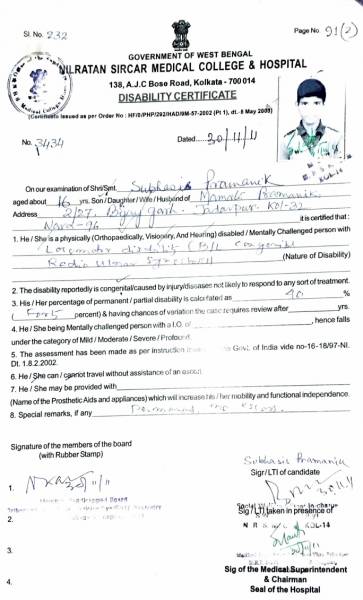 Sl. No. 232
Page No 91(2)
GOVERNMENT OF WEST BENGAL
NILRATAN SIRCAR MEDICAL COLLEGE & HOSPITAL
138, A.J.C Bose Road, Kolkata - 700 014
DISABILITY CERTIFICATE
(Certificate issued as per Order No : HF/O/PHP/292/HAD/9M-57-2002 (Pt 1), dt. 8 May 2008)
No. 3434
Dated 30/11/11
On our examination of Shri/Smt. Subhasis Pramanik
aged about 16 yrs. Son / Daughter / Wife / Husband of Mamata Pramanik
Address 2/27, Bijoy garh. Jadavpur. Kol-32
Ward-96 it is certified that :
1. He / She is a physically (Orthopaedically, Visionery, And Hearing) disabled / Mentally Challenged person with
Locomotor disability (B/L Congenital
Radio Ulnar (Nature of Disability)
2. The disability reportedly is congenital/caused by injury/diseases not likely to respond to any sort of treatment.
3. His / Her percentage of permanent / partial disability is calculated as 40 %
(Forty percent) & having chances of variation the case requires review after yrs.
4. He / She being Mentally challenged person with a I.Q. of , hence falls
under the category of Mild / Moderate / Severe / Profound.
5. The assessment has been made as per instruction Govt. of India vide no-16-18/97-NI.
Dt. 1.8.2002.
6. He / She can / cannot travel without assistance of an escort.
7. He / She may be provided with
(Name of the Prosthetic Aids and appliances) which will increase his / her mobility and functional independence.
8. Special remarks, if any Permanent, no escort
Signature of the members of the board
(with Rubber Stamp)
Subhasis Pramanik
Sigr/LTI of candidate
1.
Sig / LTI taken in presence of
N R KOL-14
2.
3.
4.
Sig of the Medical Superintendent
& Chairman
Seal of the Hospital